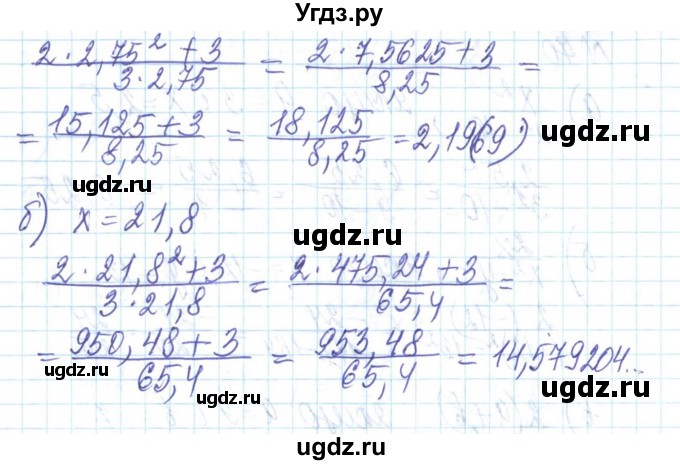 Угдз.ру
2·2,75² + 3 / 3·2,75 = 2·7,5625 + 3 / 8,25 =
= 15,125 + 3 / 8,25 = 18,125 / 8,25 = 2,19(69)
ugdz.ru
ugdz.ru
ugdz.ru
б) x = 21,8
ugdz.ru
2·21,8² + 3 / 3·21,8 = 2·475,24 + 3 / 65,4 =
= 950,48 + 3 / 65,4 = 953,48 / 65,4 = 14,579204...
ugdz.ru
ugdz.ru
ugdz.ru
ugdz.ru